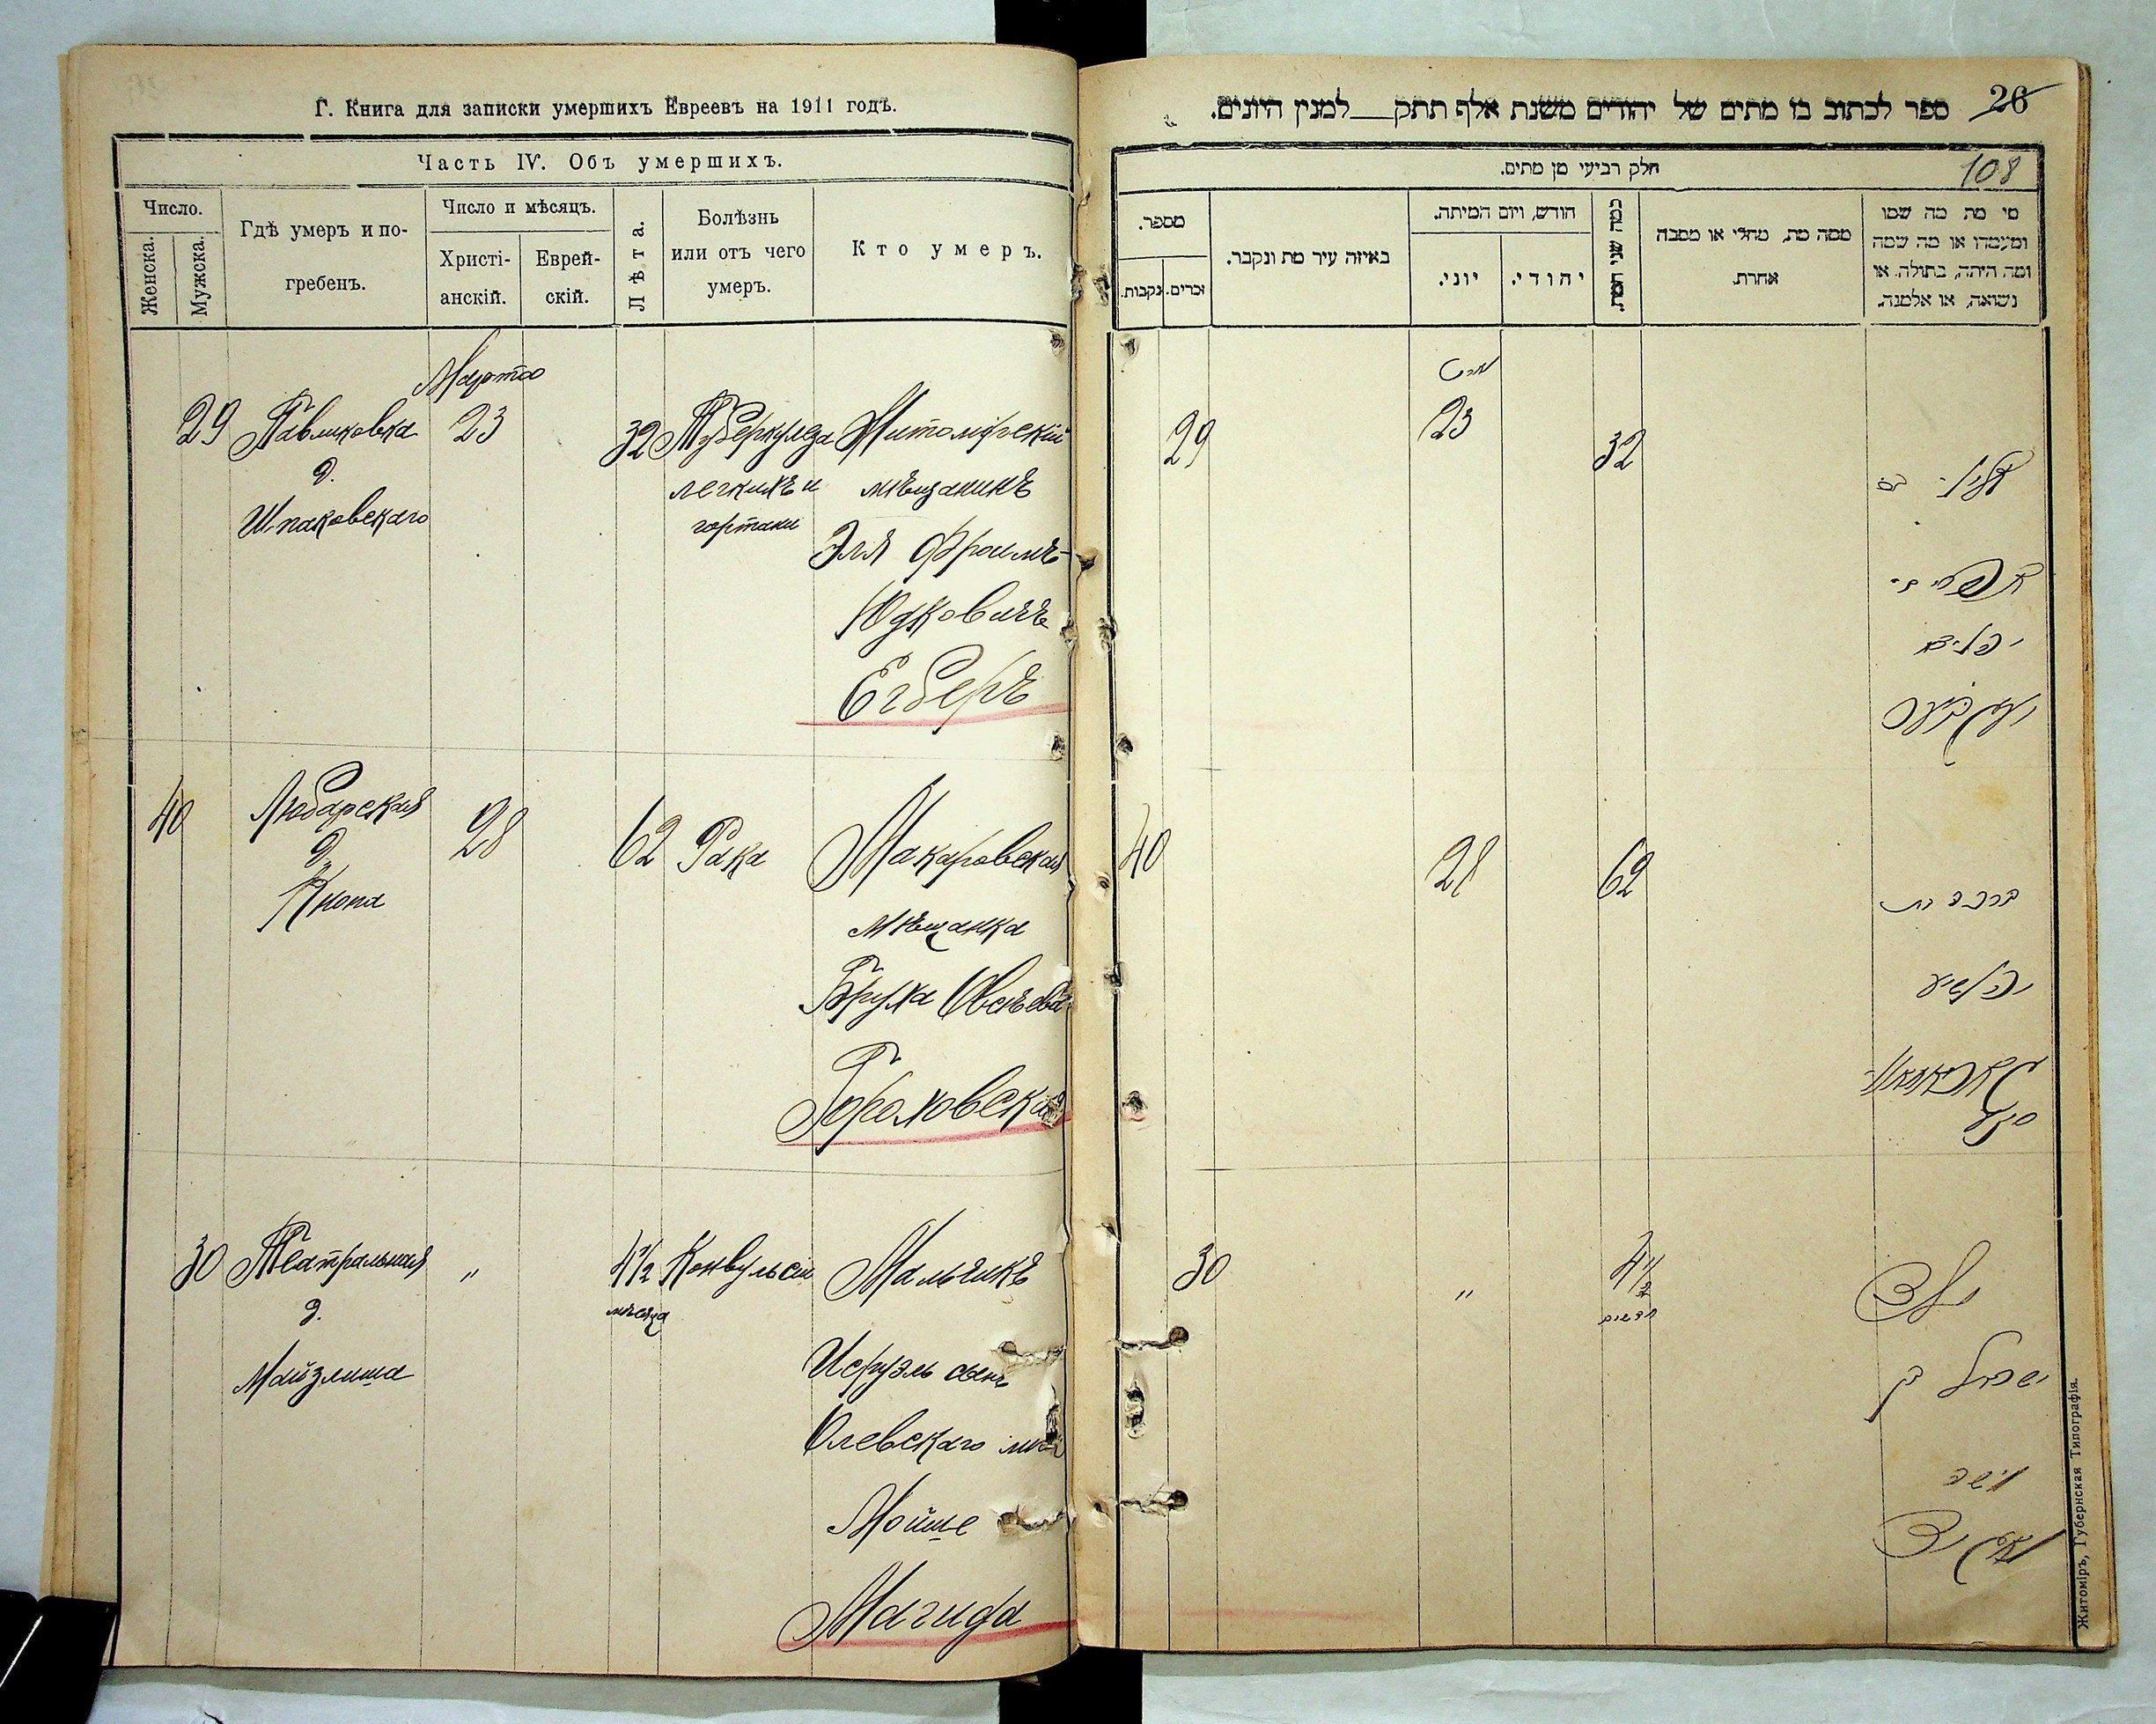 Г. Книга для записки умершихъ Евреевъ на 1911 годъ.
Часть IV. Объ умершихъ.
Число.
Женска.
Мужска.
Гдѣ умеръ и по-
гребенъ.
Число и мѣсяцъ.
Христі-
анскій.
Еврей-
скій.
Лѣта.
Болѣзнь
или отъ чего
умеръ.
Кто умеръ.
Марта
29 Павликовка 23 32 Туберкулеза Житомірскій
д. легкихъ и мѣщанинъ
Шпаковскаго гортани
Эля Фроимъ-
Юдковичъ
Егберъ
40 Любарская 28 62 Рака Макаровская
д.
Кнопа мѣщанка
Бруха Овсѣева
Гороховская
30 Театральная " 4½ Конвульсіи Мальчикъ
д. мѣсяца
Майзлиша Исруэль сынъ
Олевскаго мѣщ
Мойше
Магида
26
ספר לכתוב בו מתים של יהודים משנת אלף תתק למנין היונים.
108
חלק רביעי מן מתים.
מספר.
נקבות.
זכרים.
באיזה עיר מת ונקבר.
חודש, ויום המיתה.
יוני.
יהודי.
כמה שני המת.
ממה מת, מחלי או מסבה
אחרת
מי מת מה שמו
ומעמדו או מה שמה
ומה היתה, בתולה. או
נשואה, או אלמנה.
29 23 32
אלי'
אפרים
40 28 62
30 " 4½
חדשים
ילד
ישראל בן
משה
מאגיד
Житоміръ, Губернская Типографія.